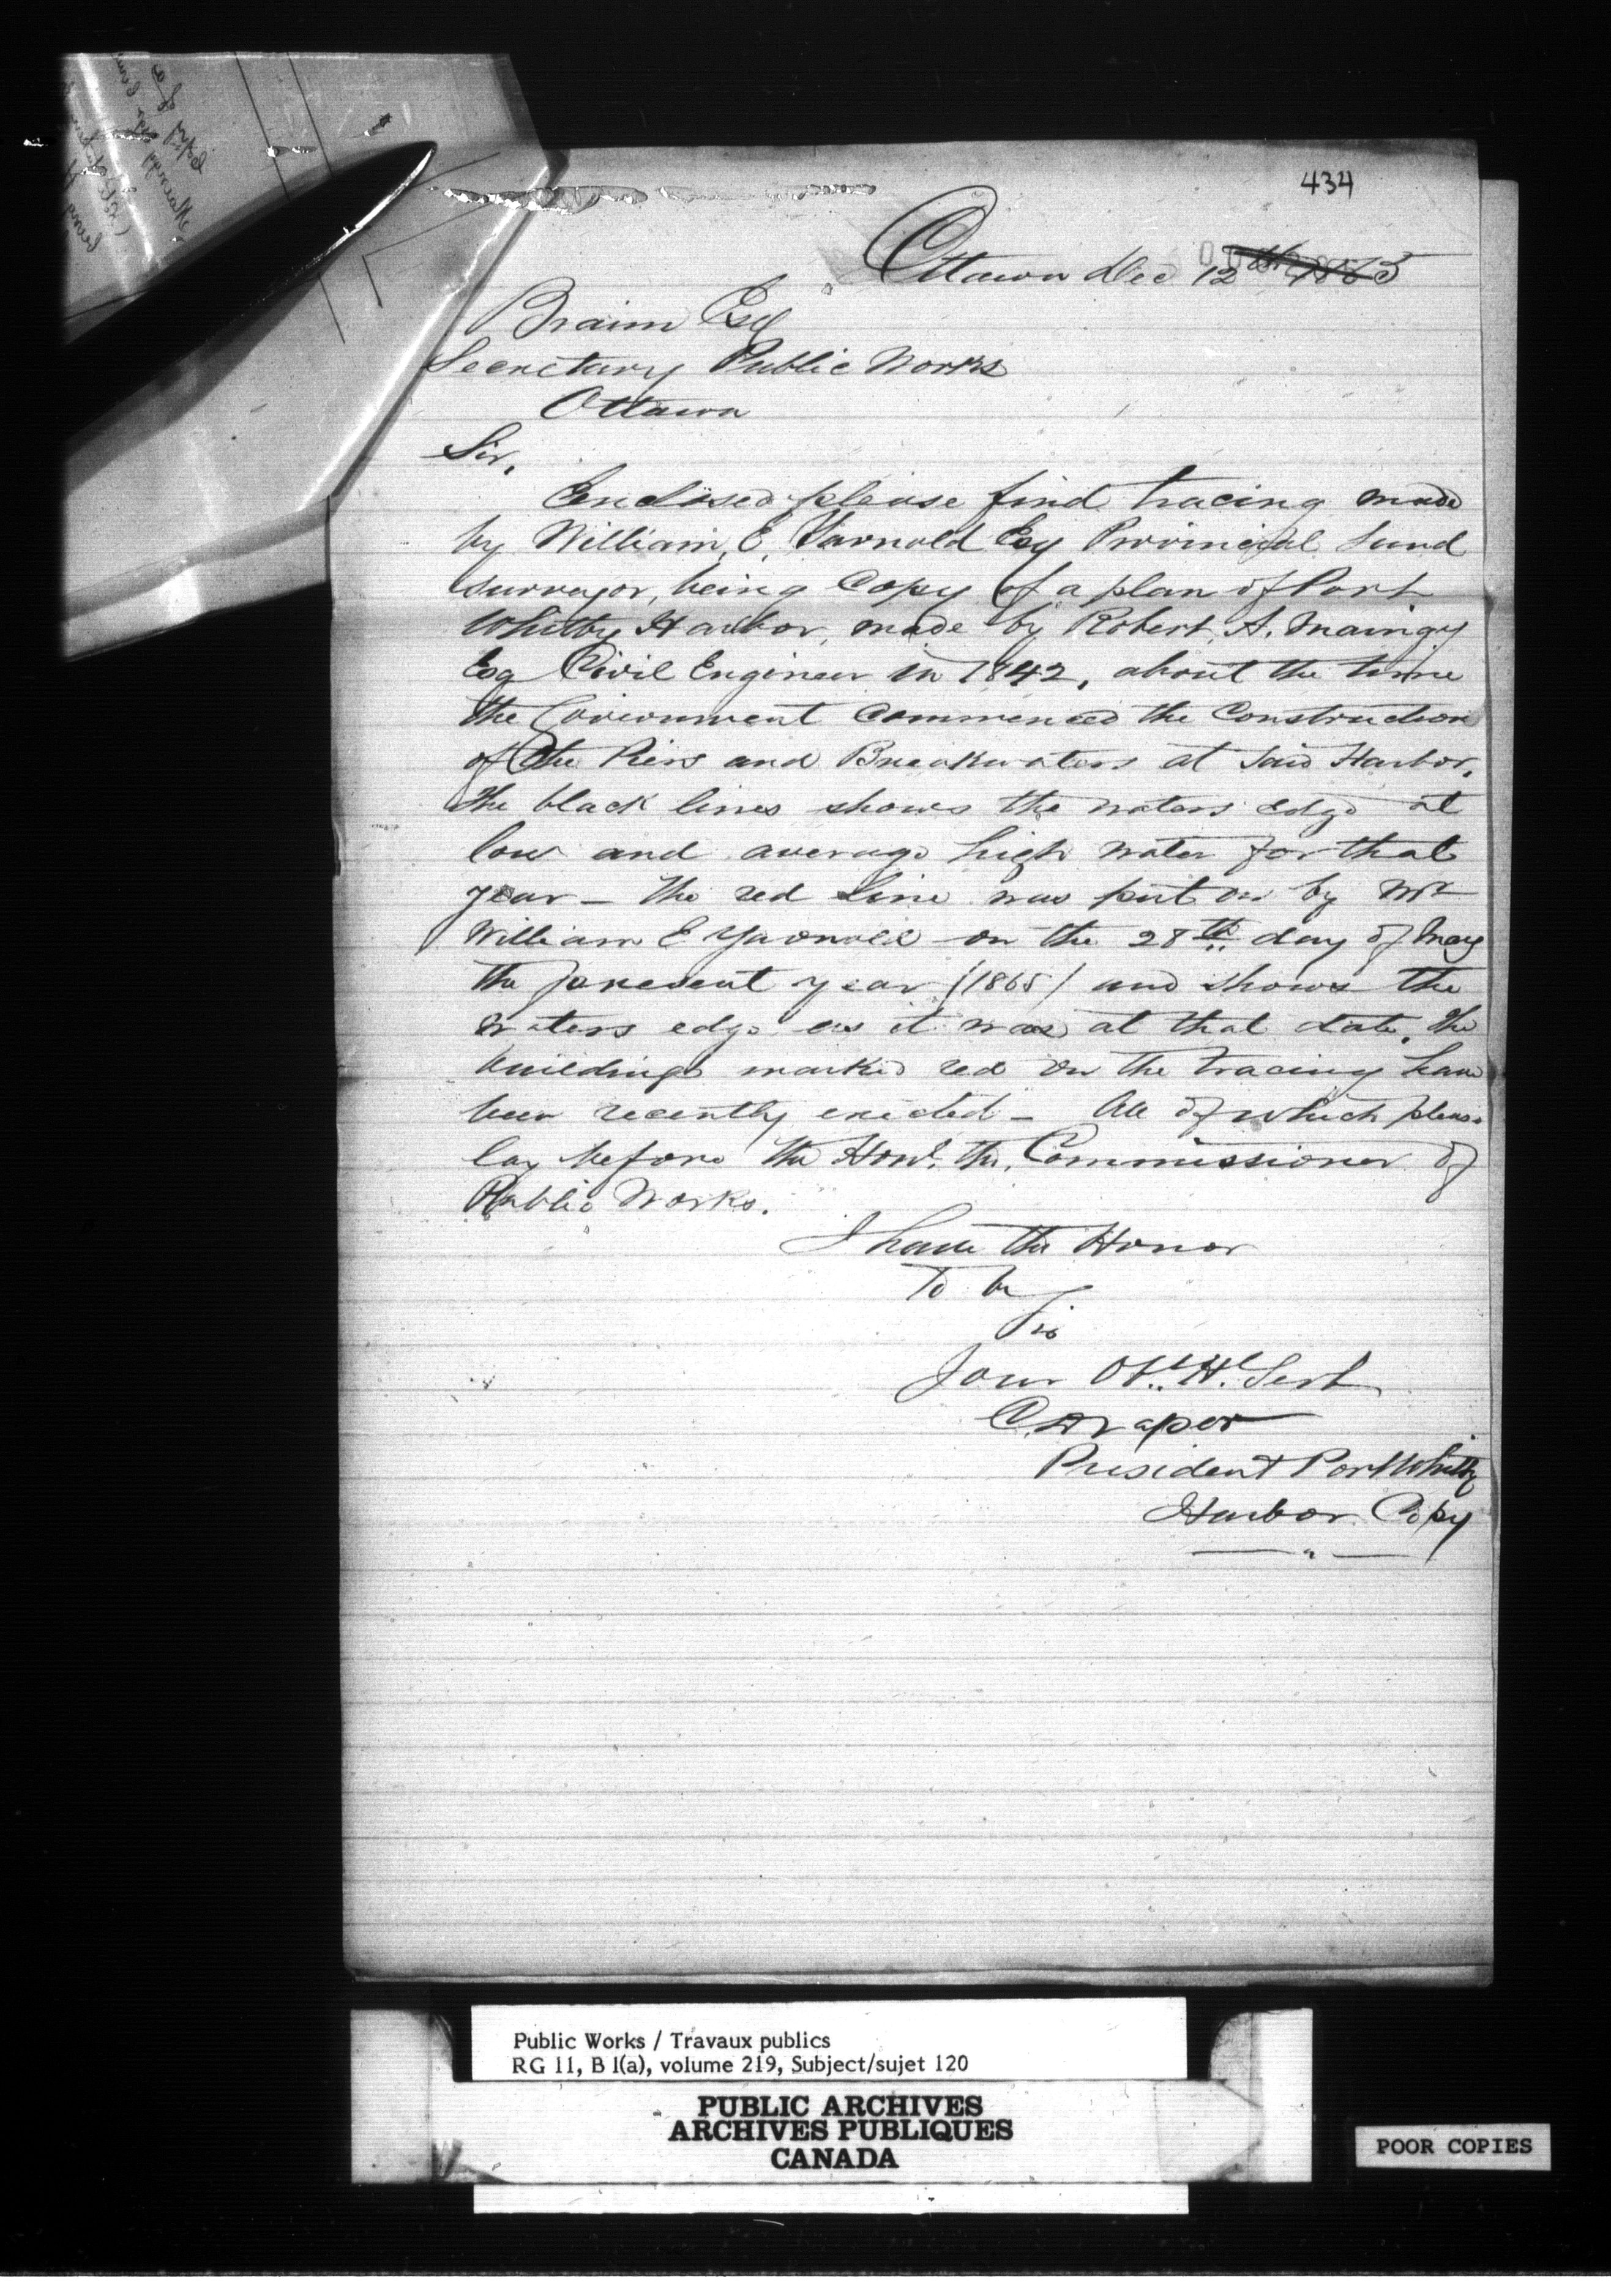 434
Ottawa Dec 12th 1865
Braim Esq
Secretary Public Works
Ottawa
Sir,
Enclosed please find tracing made
by William, E, Yarnold Esq Provincial Land
surveyor, being Copy of a plan of Port
Whitby Harbor, made by Robert, A. Maingy
Esq Civil Engineer in 1842, about the time
the Government Commenced the Construction
of the Piers and Breakwaters at said Harbor,
the black lines shows the waters edge at
low and average high water for that
year – the red line was put on by Mr
William E Yarnold on the 28th day of May
the present year (1865) and shows the
waters edge as it was at that date. the
buildings marked red on the tracing have
been recently erected – All of which please
lay before the Honl. the, Commissioner of
Public Works.
I have the Honor
To be
Sir
Your Obt. Hl. Servt
C. Draper
President Port Whitby
Harbor Copy
Public Works / Travaux publics
RG 11, B 1(a), volume 219, Subject/sujet 120
PUBLIC ARCHIVES
ARCHIVES PUBLIQUES
CANADA
POOR COPIES